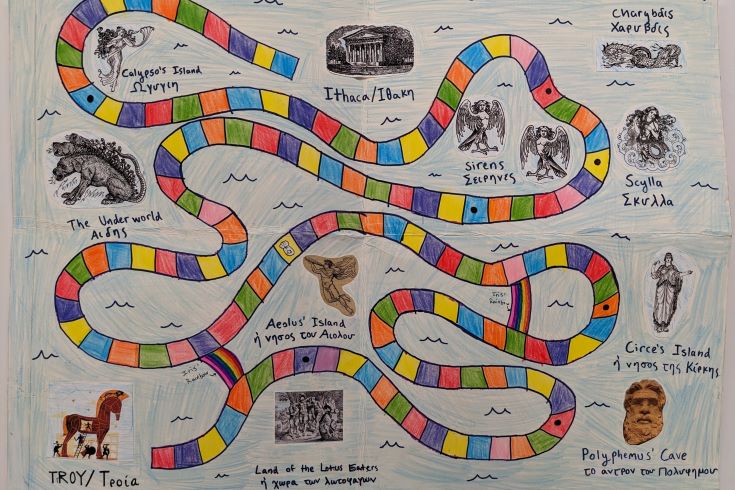 Charybdis
Χαρυβδις
Calypso's Island
Ωγυγιη
Ithaca/Ιθακη
Sirens
Σειρηνες
Scylla
Σκυλλα
The Underworld
Αιδης
Iris'
Rainbow
Aeolus' Island
ἡ νησος του Αιολου
Circe's Island
ἡ νησος της Κιρκης
Iris'
Rainbow
TROY/Τροία
Land of the Lotus Eaters
ἡ χωρα των λωτοφαγων
Polyphemus' Cave
το αντρον του Πολυφημου